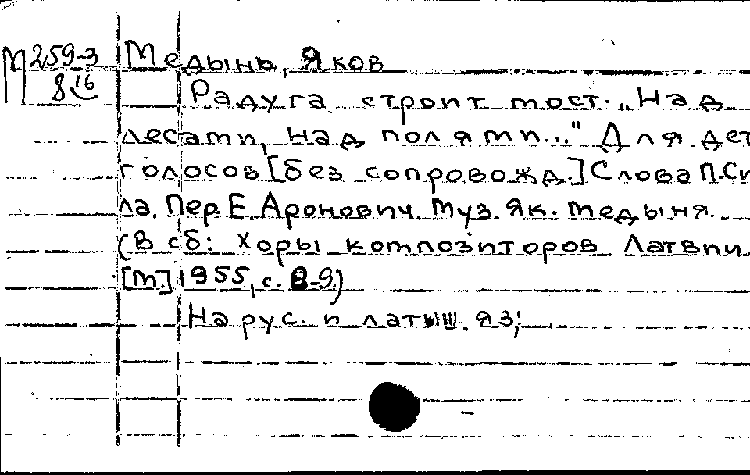 М 259-3 Медынь, Яков
8 16 Радуга строит мост. „Над
лесами, над полями..." Для дет
голосов [без сопровожд.] Слова П.Си
ла. Пер. Е. Аронович. Муз. Як. Медыня.
(В сб: Хоры композиторов Латвии
[М.] 1955, с. 8-9)
На рус. и латыш. яз;